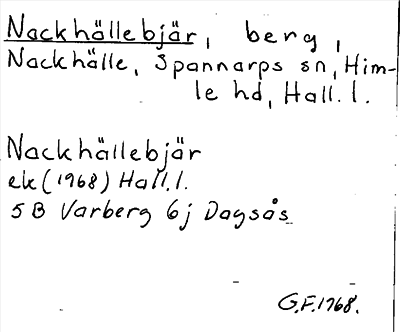 Nackhällebjär, berg,
Nackhälle, Spannarps sn, Him-
le hd, Hall. l.
Nackhällebjär
ek (1968) Hall. l.
5 B Varberg 6j Dagsås
G.F. 1968.